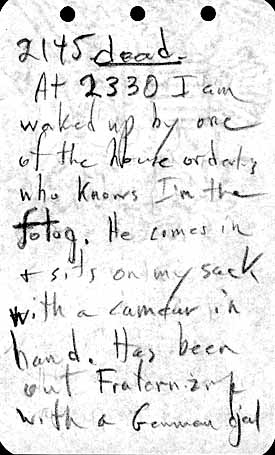 2145 dead.
At 2330 I am
waked up by one
of the house orderlys
who knows I'm the
fotog. He comes in
+ sits on my sack
with a camera in
hand. Has been
out Fraternizing
with a German gal